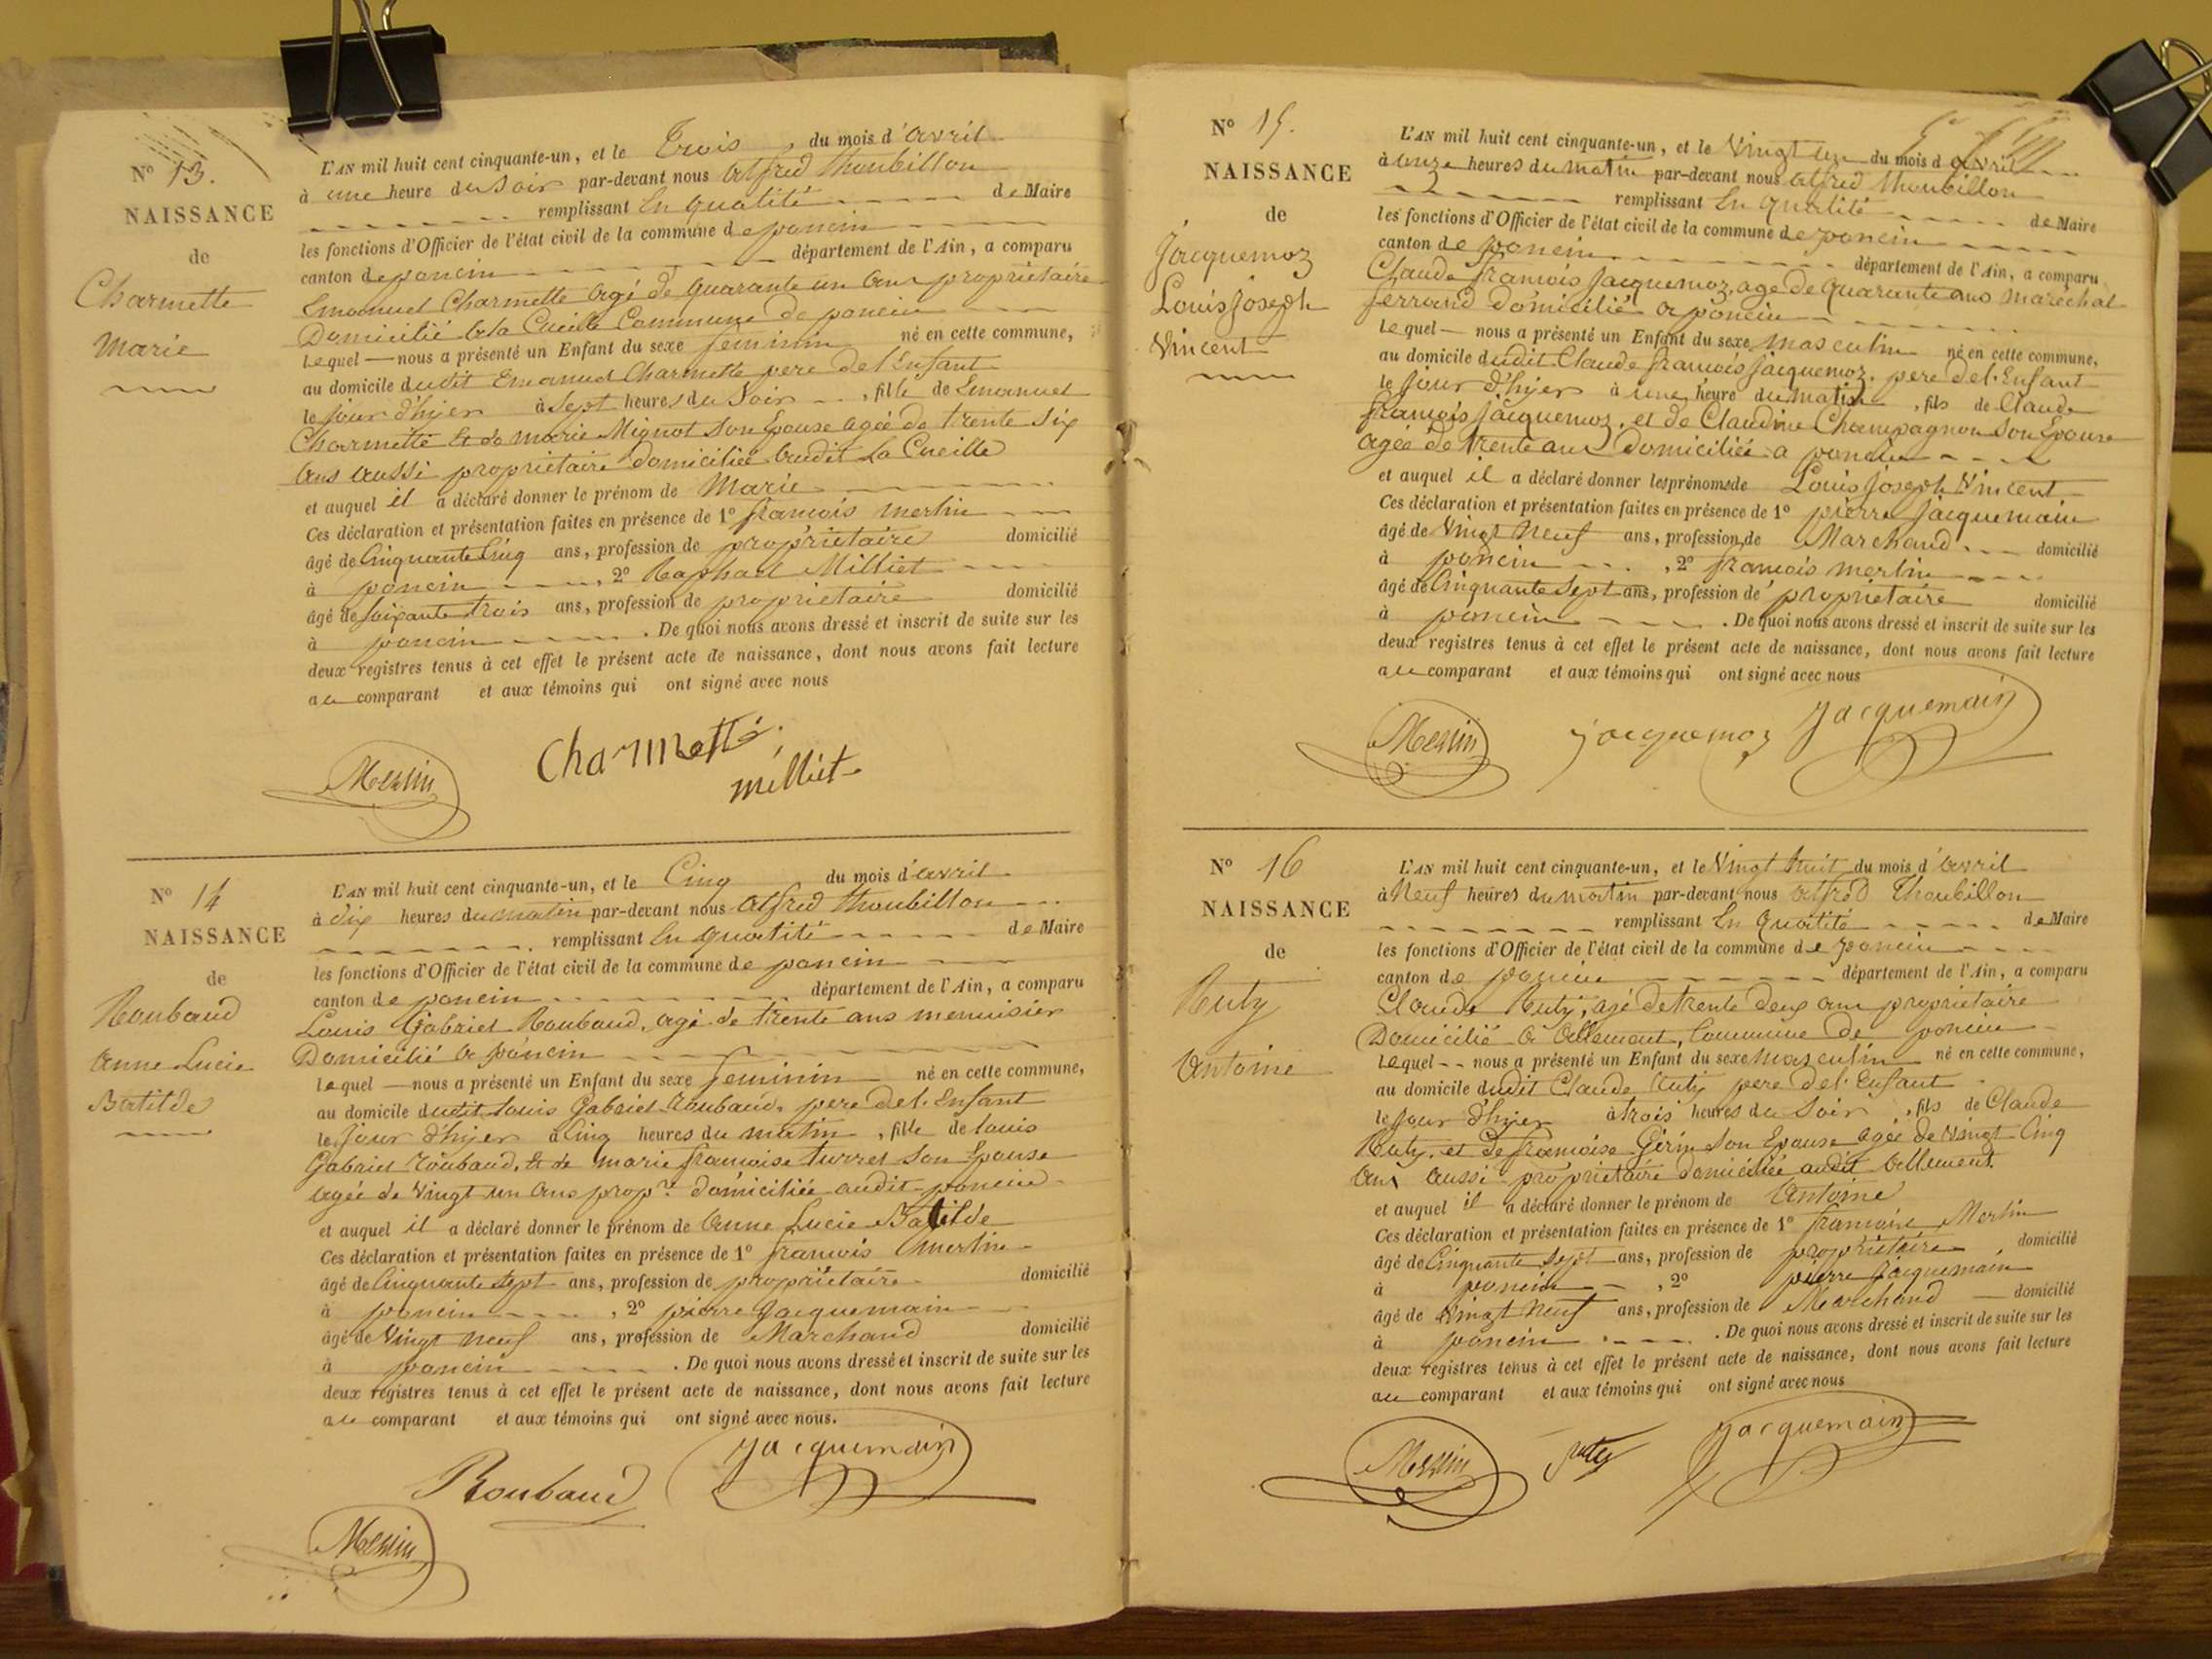 N° 13.
NAISSANCE
de
Charmette
Marie
L'AN mil huit cent cinquante-un, et le Trois du mois d'avril
à une heure du Soir par-devant nous Alfred Thoubillon
remplissant En qualité de Maire
les fonctions d'Officier de l'état civil de la commune de poncin
canton de poncin département de l'Ain, a comparu
Emanuel Charmette agé de quarante un ans propriétaire
Domicilié à la Cueille Commune de poncin
Lequel nous a présenté un Enfant du sexe feminin né en cette commune,
au domicile dudit Emanuel Charmette pere de l'Enfant
le jour d'hyer à Sept heures du Soir, fille de Emanuel
Charmette et de marie Mignot Son Epouse agée de trente Six
ans aussi propriétaire domiciliée audit La Cueille
et auquel il a déclaré donner le prénom de Marie
Ces déclaration et présentation faites en présence de 1° françois merlin
âgé de Cinquante Cinq ans, profession de propriétaire domicilié
à poncin, 2° Raphael Milliet
âgé de Soixante trois ans, profession de propriétaire domicilié
à poncin. De quoi nous avons dressé et inscrit de suite sur les
deux registres tenus à cet effet le présent acte de naissance, dont nous avons fait lecture
au comparant et aux témoins qui ont signé avec nous
Charmette
Merlin
milliet
N° 14
NAISSANCE
de
Roubaud
Anne Lucie
Batilde
L'AN mil huit cent cinquante-un, et le Cinq du mois d'avril
à dix heures du matin par-devant nous Alfred Thoubillon
remplissant En qualité de Maire
les fonctions d'Officier de l'état civil de la commune de poncin
canton de poncin département de l'Ain, a comparu
Louis Gabriel Roubaud, agé de trente ans menuisier
Domicilié a poncin
Lequel nous a présenté un Enfant du sexe feminin né en cette commune,
au domicile dudit Louis Gabriel Roubaud, pere de l'Enfant
le jour d'hyer à Cinq heures du matin, fille de Louis
Gabriel Roubaud, et de marie françoise turrel Son Epouse
agée de Vingt un ans prop.re domiciliée audit poncin
et auquel il a déclaré donner le prénom de Anne Lucie Batilde
Ces déclaration et présentation faites en présence de 1° françois Merlin
âgé de Cinquante Sept ans, profession de propriétaire domicilié
à poncin, 2° pierre Jacquemain
âgé de Vingt neuf ans, profession de Marchand domicilié
à poncin. De quoi nous avons dressé et inscrit de suite sur les
deux registres tenus à cet effet le présent acte de naissance, dont nous avons fait lecture
au comparant et aux témoins qui ont signé avec nous.
Jacquemain
Roubaud
Merlin
N° 15.
NAISSANCE
de
Jacquemoz
Louis Joseph
Vincent
L'AN mil huit cent cinquante-un, et le Vingt un du mois d'avril
à onze heures du matin par-devant nous Alfred Thoubillon
remplissant En qualité de Maire
les fonctions d'Officier de l'état civil de la commune de poncin
canton de poncin département de l'Ain, a comparu
Claude françois Jacquemoz, age de quarante ans marechal
ferrand domicilié a poncin
Lequel nous a présenté un Enfant du sexe masculin né en cette commune,
au domicile dudit Claude françois Jacquemoz, pere de l'Enfant
le jour d'hyer à une heure du matin, fils de Claude
françois Jacquemoz, et de Claudine Champagnon Son Epouse
agée de trente ans domiciliée a poncin
et auquel il a déclaré donner les prénoms de Louis Joseph Vincent
Ces déclaration et présentation faites en présence de 1° pierre Jacquemain
âgé de Vingt neuf ans, profession de Marchand domicilié
à poncin, 2° françois merlin
âgé de Cinquante Sept ans, profession de propriétaire domicilié
à poncin. De quoi nous avons dressé et inscrit de suite sur les
deux registres tenus à cet effet le présent acte de naissance, dont nous avons fait lecture
au comparant et aux témoins qui ont signé avec nous
Merlin jacquemoz Jacquemain
N° 16
NAISSANCE
de
Ruty
Antoine
L'AN mil huit cent cinquante-un, et le Vingt huit du mois d'avril
à Neuf heures du matin par-devant nous Alfred Thoubillon
remplissant En Qualité de Maire
les fonctions d'Officier de l'état civil de la commune de poncin
canton de poncin département de l'Ain, a comparu
Claude Ruty, agé de trente deux ans propriétaire
Domicilié à Allement, Commune de poncin
Lequel nous a présenté un Enfant du sexe masculin né en cette commune,
au domicile dudit Claude Ruty pere de l'Enfant
le jour d'hyer à trois heures du Soir, fils de Claude
Ruty, et de françoise Girin Son Epouse agée de Vingt Cinq
ans aussi propriétaire domiciliée audit Allement.
et auquel il a déclaré donner le prénom de Antoine
Ces déclaration et présentation faites en présence de 1° françois Merlin
âgé de Cinquante Sept ans, profession de propriétaire domicilié
à poncin, 2° pierre Jacquemain
âgé de Vingt Neuf ans, profession de Marchand domicilié
à poncin. De quoi nous avons dressé et inscrit de suite sur les
deux registres tenus à cet effet le présent acte de naissance, dont nous avons fait lecture
au comparant et aux témoins qui ont signé avec nous
Merlin ruty Jacquemain